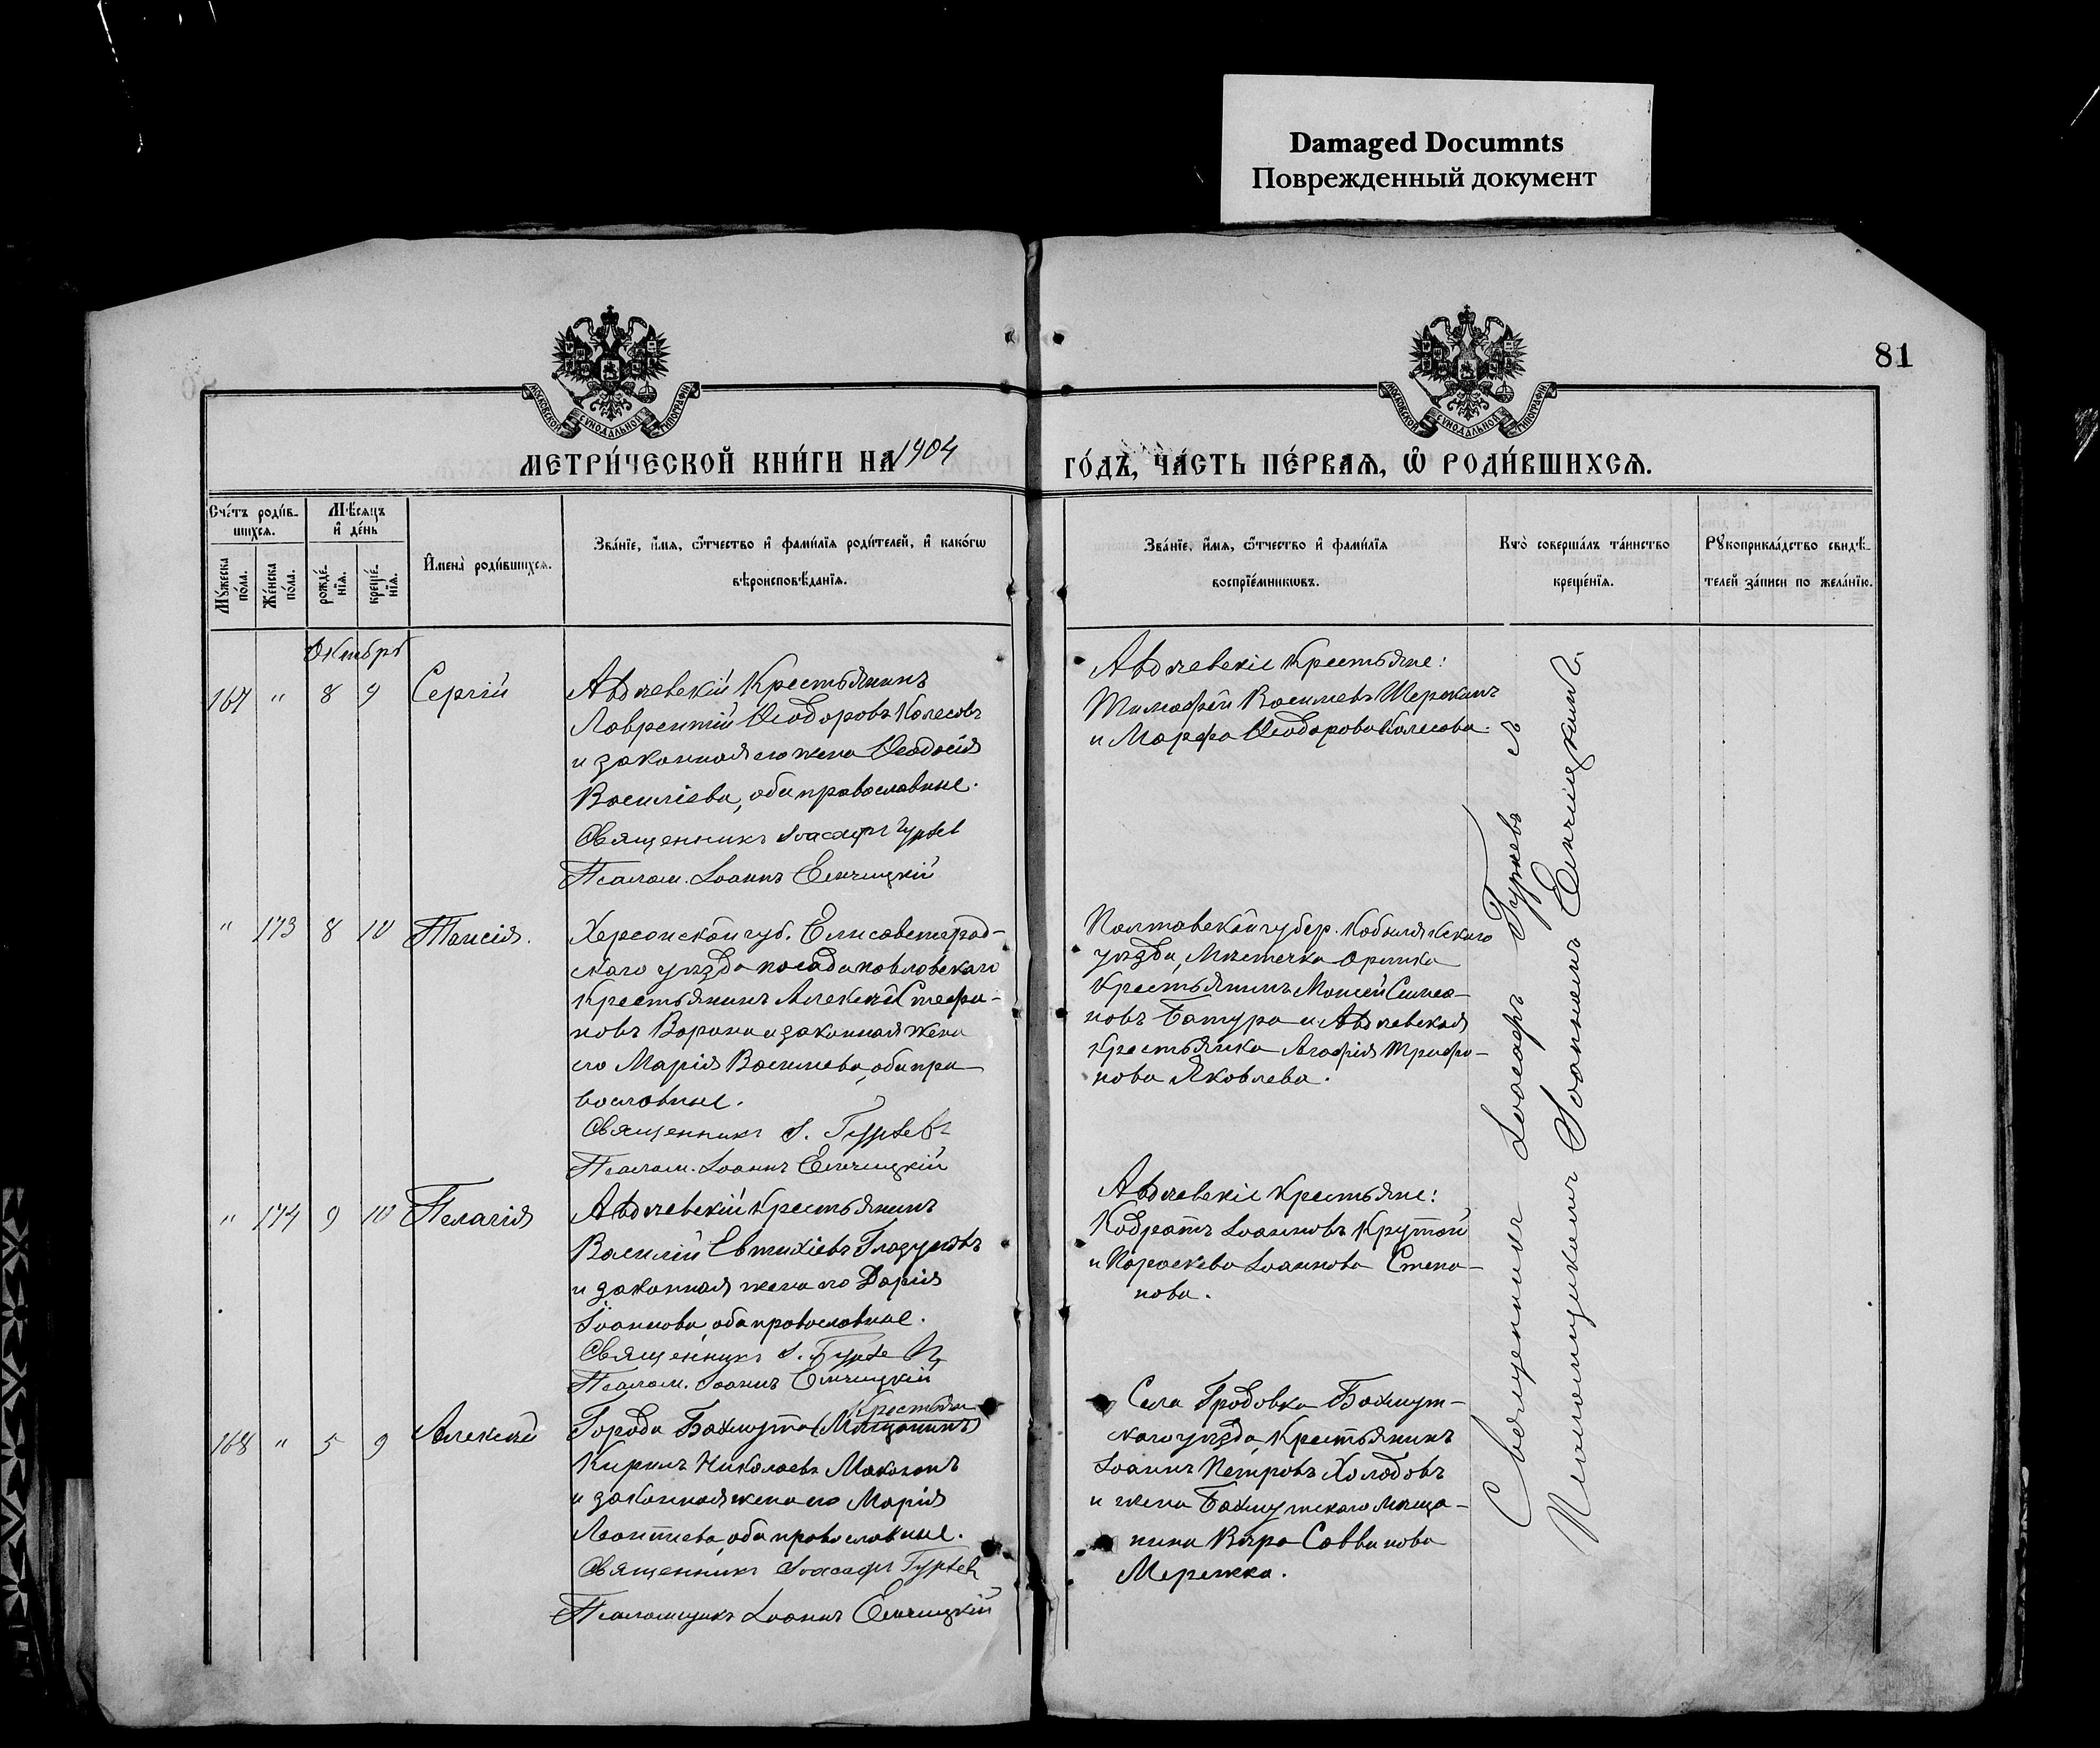 Damaged Documnts
Поврежденный документ
81
МОСКОВСКОЙ СУНОДАЛЬНОЙ ТИПОГРАФИИ
МОСКОВСКОЙ СУНОДАЛЬНОЙ ТИПОГРАФИИ
МЕТРИ́ЧЕСКОЙ КНИ́ГИ НА 1904
ГО́ДЪ, ЧА́СТЬ ПЕ́РВАѦ, Ѽ РОДИ́ВШИХСѦ.
Сче́тъ роди́в-
шихсѧ.
Мꙋ́жеска по́ла.
Же́нска по́ла.
Мѣ́сѧцъ
и҆ де́нь
рожде́-
нїѧ.
креще́-
нїѧ.
И҆мена̀ роди́вшихсѧ.
Зва́нїе, и҆́мѧ, ѻ҆́тчество и҆ фами́лїѧ роди́телей, и҆ како́гѡ
вѣроисповѣ́данїѧ.
Зва́нїе, и҆́мѧ, ѻ҆́тчество и҆ фами́лїѧ
воспрїе́мникѡвъ.
Кто̀ соверша́лъ та́инство
креще́нїѧ.
Рꙋкоприкла́дство свидѣ́-
телей за́писи по жела́нїю.
Октябрь
167 " 8 9 Сергій
Авдѣевскій Крестьянинъ
Лаврентій Ѳеодоровъ Колесовъ
и законная его жена Ѳеодосія
Василіева, оба православные.
Священникъ Іоасафъ Гурьев
Псалом. Іоаннъ Еличицкій
Авдѣевскіе Крестьяне:
Тимофей Васильевъ Шерекинъ
и Марфа Ѳеодорова Колесова.
" 173 8 10 Таисія.
Херсонской губ. Елисаветград-
скаго уѣзда посада павловскаго
Крестьянинъ Алексѣй Стефа-
новъ Ворона и законная жена
его Марія Васильева, оба пра-
вославные.
Священникъ І. Гурьевъ
Псалом. Іоаннъ Еличицкій
Полтавской губер. Кобылякскаго
уѣзда, Мѣстечка Орлика
Крестьянинъ Моисей Симео-
новъ Батура и Авдѣевская
крестьянка Агафія Трифо-
нова Яковлева.
" 174 9 10 Пелагія
Авдѣевскій Крестьянинъ
Василій Евтихіевъ Глазуновъ
и законная жена его Дарія
Іоаннова, оба православные.
Священникъ І. Гурьевъ
Псалом. Іоаннъ Еличицкій
Авдѣевскіе Крестьяне:
Кодратъ Іоанновъ Крутой
и Параскева Іоаннова Степа-
нова.
168 " 5 9 Алексѣй
Крестьян
Города Бахмута (Мѣщанинъ)
Кирилъ Николаевъ Маконъ
и законная жена его Марія
Леонтиева, оба православные.
Священникъ Іоасафъ Гурьев
Псаломщикъ Іоаннъ Еличицкій
Села Гродовка Бахмут-
скаго уѣзда, Крестьянинъ
Іоаннъ Петровъ Холодовъ
и жена Бахмутскаго мѣща-
нина Вѣра Саввинова
Мережка.
Священникъ Іоасафъ Гурьевъ съ
Псаломщикомъ Іоанномъ Еличицкимъ.